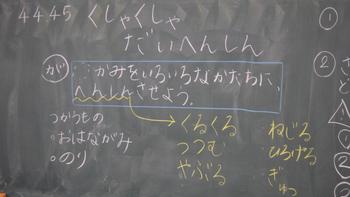 4445 くしゃくしゃ
だいへんしん
が かみをいろいろなかたちに、
へんしんさせよう。
つかうもの
・おはながみ
・のり
くるくる
つつむ
やぶる
ねじる
ひろげる
ぎゅっ
①
②